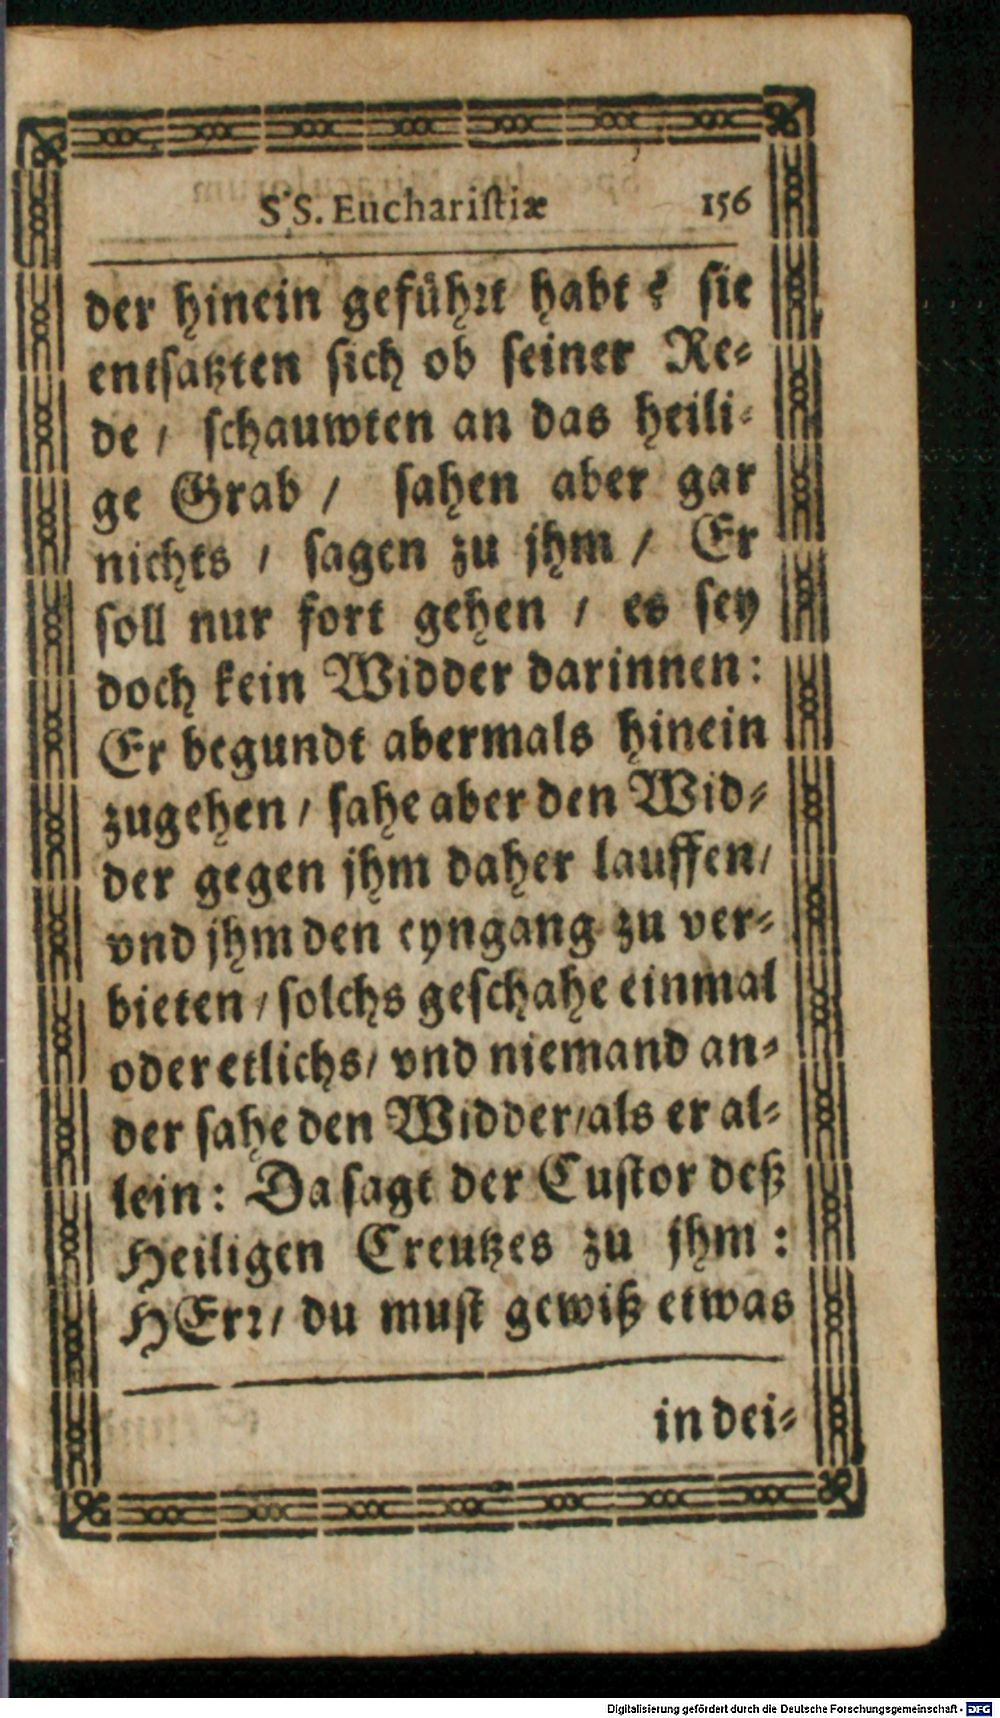 SS. Euchariſtiæ 156
der hinein gefühꝛt habt? ſie
entſatzten ſich ob ſeiner Re⸗
de / ſchauwten an das heili⸗
ge Grab / ſahen aber gar
nichts / ſagen zu jhm / Er
ſoll nur fort gehen / es ſey
doch kein Widder darinnen:
Er begundt abermals hinein
zugehen / ſahe aber den Wid⸗
der gegen jhm daher lauffen/
vnd jhm den eyngang zu ver⸗
bieten / ſolchs geſchahe einmal
oder etlichs / vnd niemand an⸗
der ſahe den Widder / als er al⸗
lein: Da ſagt der Cuſtor deß
Heiligen Creutzes zu jhm:
HErꝛ / du muſt gewiß etwas
in dei⸗
Digitalisierung gefördert durch die Deutsche Forschungsgemeinschaft - DFG